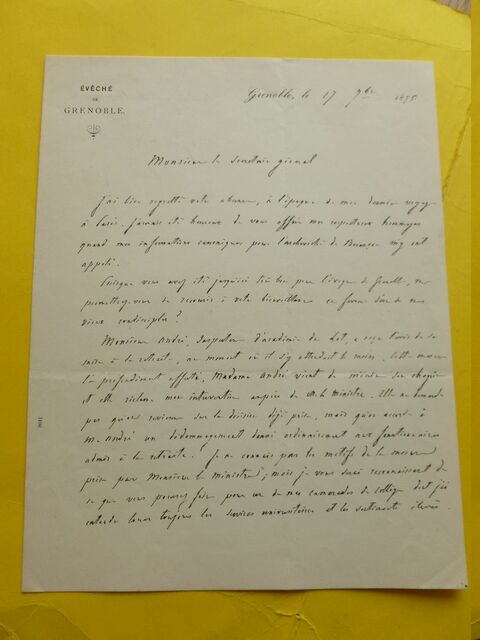 ÉVÊCHÉ
DE
GRENOBLE.
Grenoble, le 17 9bre 1875
Monsieur le Secrétaire général
J'ai bien regretté votre absence, à l'époque de mon dernier voyage
à Paris. J'aurais été heureux de vous offrir mes respectueux hommages
quand mes informations canoniques pour l'archevêché de Besançon m'y ont
appelé.
Puisque vous avez été jusqu'ici très bon pour l'évêque de, me
permettrez-vous de recourir à votre bienveillance en faveur d'un de mes
vieux condisciples?
Monsieur André, Inspecteur d'académie du Lot, a reçu l'avis de sa
mise à la retraite, au moment où il s'y attendait le moins. Cette mesure
l'a profondément affecté, Madame André vient de m'écrire son chagrin
et elle réclame mon intervention auprès de M. le Ministre. Elle ne demande
pas qu'on revienne sur la décision déjà prise, mais qu'on accorde à
M. André un dédommagement donné ordinairement aux fonctionnaires
admis à la retraite. Je ne connais pas les motifs de la mesure
prise par Monsieur le Ministre; mais je vous serai reconnaissant de
ce que vous pourrez faire pour un de mes camarades de collège dont j'ai
entendu louer toujours les services universitaires et les sentiments élevés.